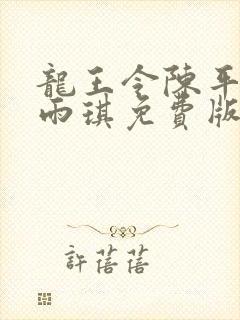 龍王令陳平
雨琪免費版
許蓓蓓